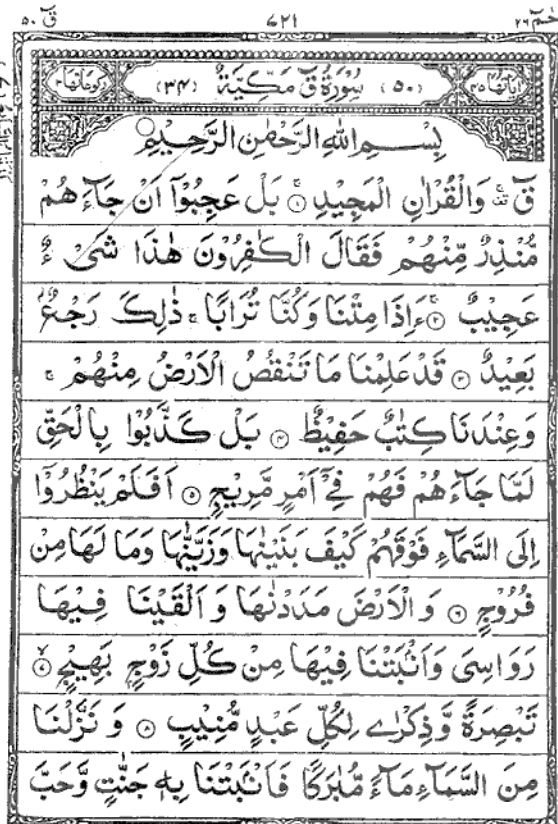 قٓ ۵۰ ۷۲۱ حٰمٓ ۲۶
اٰیَاتُهَا ۴۵ (۵۰) سُوْرَةُ قٓ مَكِّیَّةٌ (۳۴) رُكُوْعَاتُهَا ۳
بِسْمِ اللهِ الرَّحْمٰنِ الرَّحِیْمِ
قٓ ۚ وَالْقُرْاٰنِ الْمَجِیْدِ ۱ بَلْ عَجِبُوْۤا اَنْ جَآءَهُمْ
مُّنْذِرٌ مِّنْهُمْ فَقَالَ الْكٰفِرُوْنَ هٰذَا شَیْءٌ
عَجِیْبٌ ۲ ءَاِذَا مِتْنَا وَكُنَّا تُرَابًا ۚ ذٰلِكَ رَجْعٌۢ
بَعِیْدٌ ۳ قَدْ عَلِمْنَا مَا تَنْقُصُ الْاَرْضُ مِنْهُمْ ۚ
وَعِنْدَنَا كِتٰبٌ حَفِیْظٌ ۴ بَلْ كَذَّبُوْا بِالْحَقِّ
لَمَّا جَآءَهُمْ فَهُمْ فِیْۤ اَمْرٍ مَّرِیْجٍ ۵ اَفَلَمْ یَنْظُرُوْۤا
اِلَی السَّمَآءِ فَوْقَهُمْ كَیْفَ بَنَیْنٰهَا وَزَیَّنّٰهَا وَمَا لَهَا مِنْ
فُرُوْجٍ ۶ وَالْاَرْضَ مَدَدْنٰهَا وَاَلْقَیْنَا فِیْهَا
رَوَاسِیَ وَاَنْۢبَتْنَا فِیْهَا مِنْ كُلِّ زَوْجٍۭ بَهِیْجٍ ۷
تَبْصِرَةً وَّذِكْرٰی لِكُلِّ عَبْدٍ مُّنِیْبٍ ۸ وَنَزَّلْنَا
مِنَ السَّمَآءِ مَآءً مُّبٰرَكًا فَاَنْۢبَتْنَا بِهٖ جَنّٰتٍ وَّحَبَّ